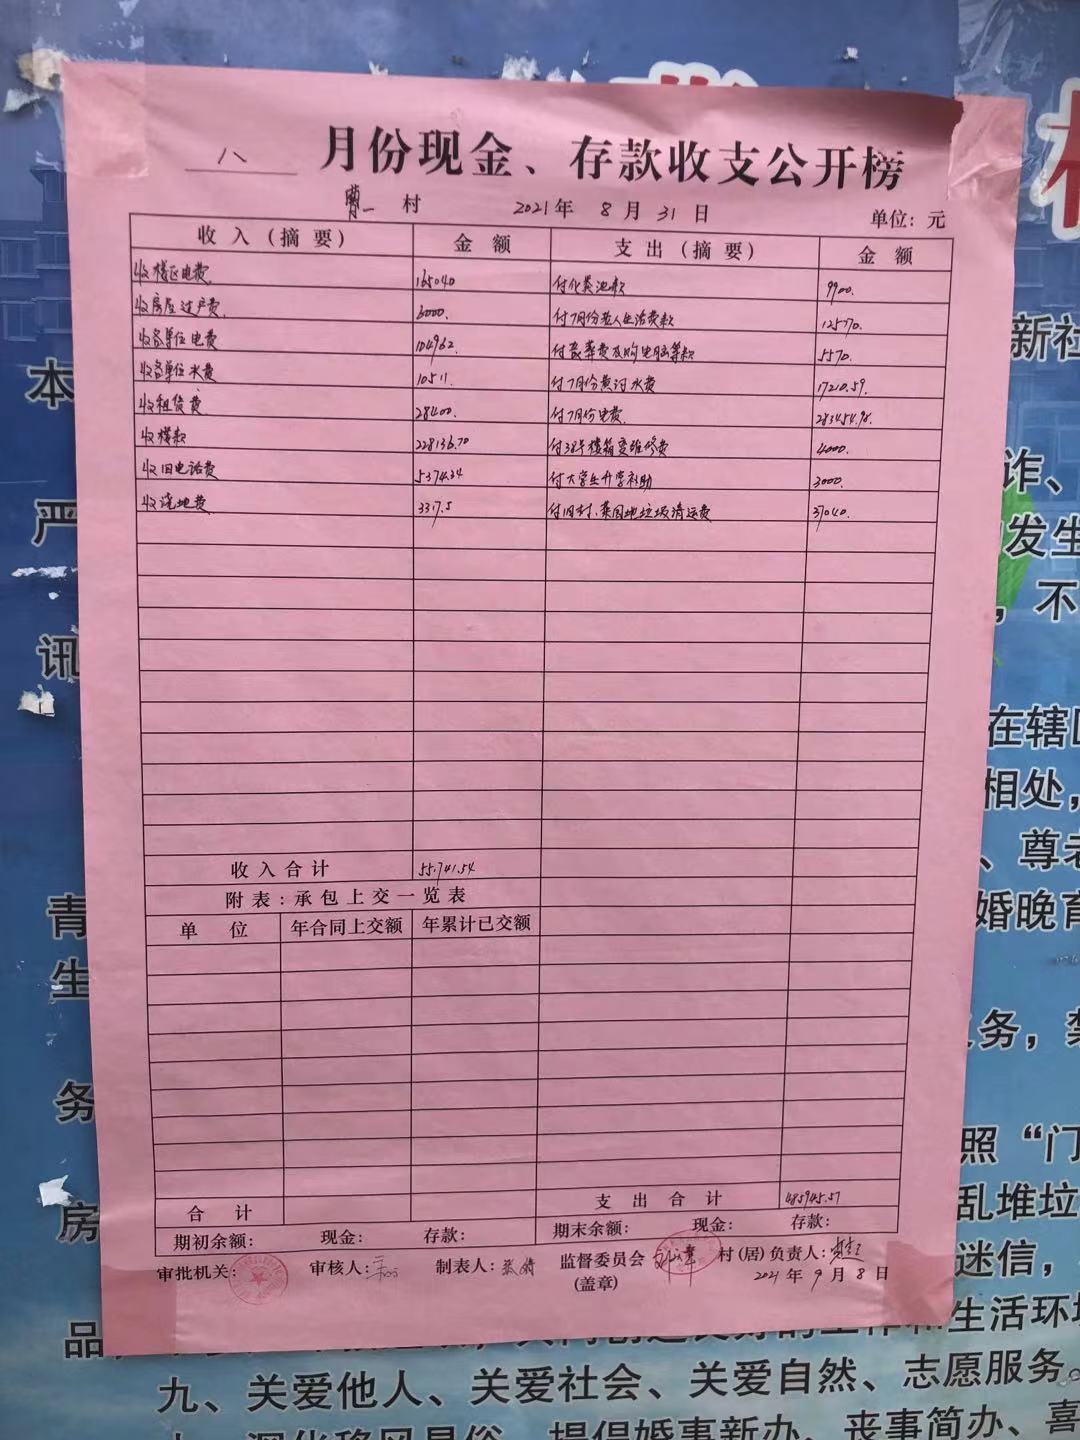 八 月份现金、存款收支公开榜
曹一 村 2021年 8月 31日 单位：元
收入（摘要） 金额 支出（摘要） 金额
收楼区电费 165040 付化粪池款 9900.
收房屋过户费 6000. 付7月份老人生活费款 12570.
收各单位电费 104962. 付丧葬费及购电脑等款 5570.
收各单位水费 10511. 付7月份黄河水费 17210.59.
收租赁费 28400. 付7月份电费 283454.98.
收楼款 228136.70 付38号楼箱变维修费 4000.
收旧电话费 5374.34 付大学生升学补助 3000.
收浇地费 3317.5 付旧村、菜园地垃圾清运费 37040.
收入合计 55.741.54
附表：承包上交一览表
单位 年合同上交额 年累计已交额
合计 支出合计 485945.57
期初余额： 现金： 存款： 期末余额： 现金： 存款：
审批机关： 审核人： 制表人： 监督委员会 村(居)负责人：
(盖章) 2021年9月8日
本
新社
诈、
严
发生
，不
讯
在辖区
相处，
、尊老
青
婚晚育
生
务，禁
务
照“门
房
乱堆垃
迷信，
品
生活环境
九、关爱他人、关爱社会、关爱自然、志愿服务。